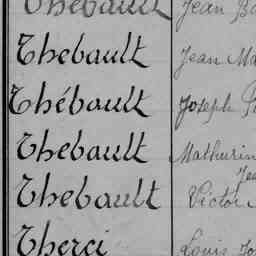 Thebault Jean
Thebault Jean
Thébault Joseph
Thebault Mathurin
Thebault Victor
Therci Louis